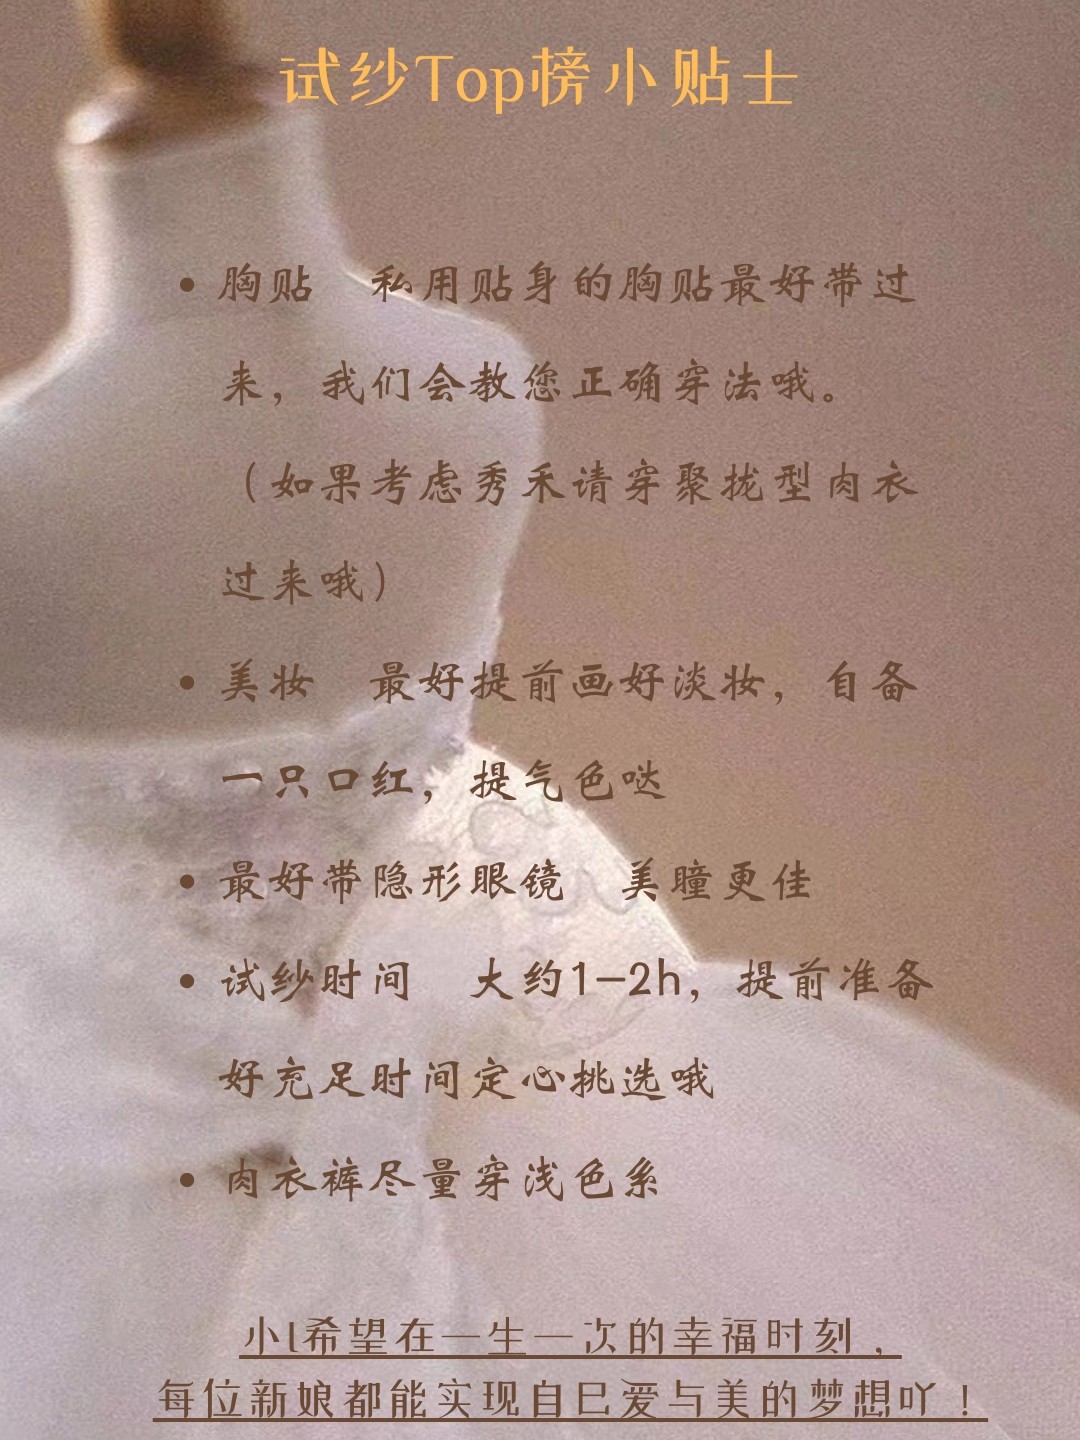 试纱Top榜小贴士
• 胸贴 私用贴身的胸贴最好带过
来，我们会教您正确穿法哦。
（如果考虑秀禾请穿聚拢型内衣
过来哦）
• 美妆 最好提前画好淡妆，自备
一只口红，提气色哒
• 最好带隐形眼镜 美瞳更佳
• 试纱时间 大约1-2h，提前准备
好充足时间定心挑选哦
• 内衣裤尽量穿浅色系
小l希望在一生一次的幸福时刻，
每位新娘都能实现自己爱与美的梦想吖！